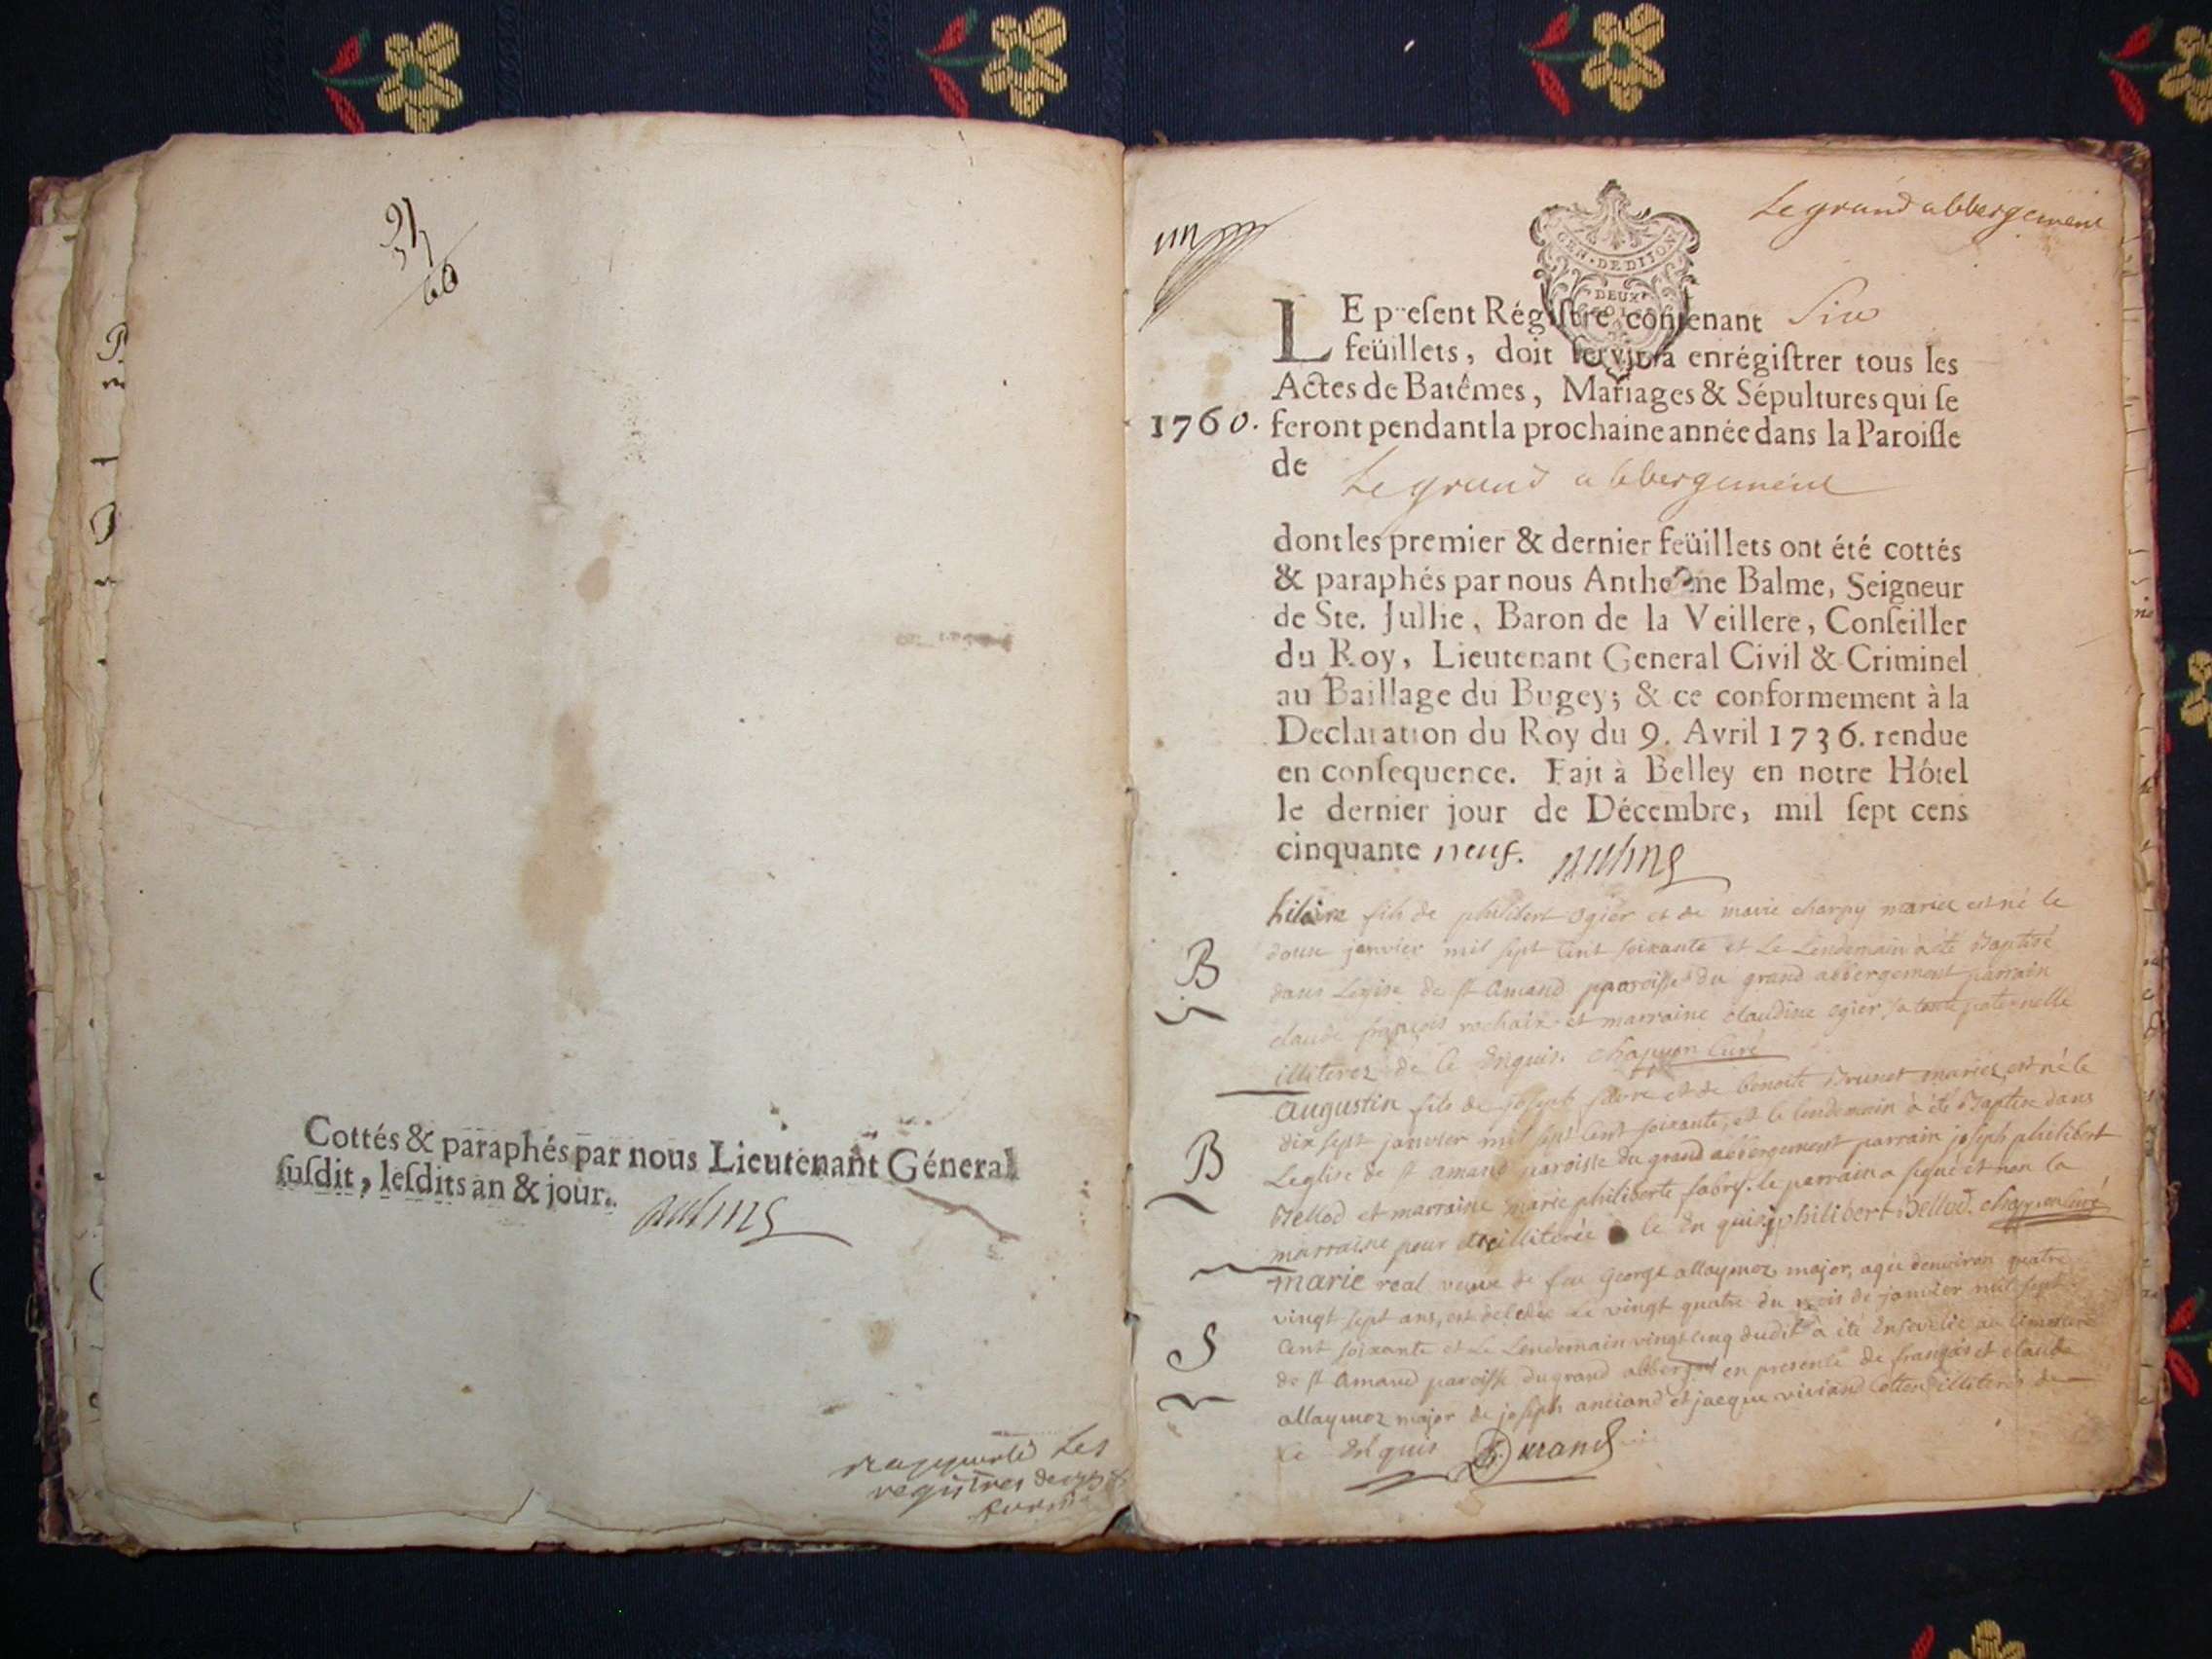 Cottés & paraphés par nous Lieutenant Géneral
ſuſdit, leſdits an & jour.
registres de
un
Le grand abbergement
GEN. DE DIJON
DEUX
LE preſent Régiſtre contenant Six
feüillets, doit ſervir à enrégiſtrer tous les
Actes de Batêmes, Mariages & Sépultures qui ſe
1760. feront pendant la prochaine année dans la Paroiſſe
de Le grand abbergement
dont les premier & dernier feüillets ont été cottés
& paraphés par nous Anthelme Balme, Seigneur
de Ste. Jullie, Baron de la Veillere, Conſeiller
du Roy, Lieutenant General Civil & Criminel
au Baillage du Bugey; & ce conformement à la
Declaration du Roy du 9. Avril 1736. rendue
en conſequence. Fait à Belley en notre Hôtel
le dernier jour de Décembre, mil ſept cens
cinquante neuf.
hilaire fils de philibert ogier et de marie charpy mariez est né le
B
douze janvier mil sept cent soixante et Le Lendemain a été Baptisé
dans Legise de st amand paroisse du grand abbergement parrain
claude françois rochaix et marraine claudine ogier sa tante paternelle
illiterez de ce Enquis. chapuon curé
augustin fils de joseph favre et de benoite Brunet mariez est né le
B
dix sept janvier mil sept cent soixante, et le lendemain a été Baptize dans
Leglise de st amand paroisse du grand abbergement parrain joseph philibert
Bellod et marraine marie philiberte fabry. le parrain a signé et non la
marraine pour etre illiterée de ce En quise philibert Bellod. curé
marie real veuve de feu George allaymoz major, agée denviron quatre
vingt sept ans, est decedée Le vingt quatre du mois de janvier mil sept
S
Cent soixante et Le Lendemain vingt cinq dudit a été Ensevelie au
de st Amand paroisse du grand en presence de françois et claude
allaymoz major de joseph anciand et jacque viviand illiterés de
ce Enquis Durand